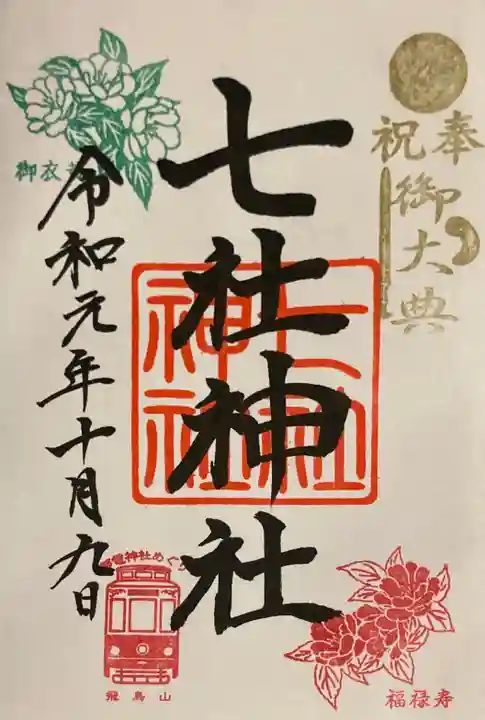 奉祝
御大典
七社神社
七社
神社
令和元年十月九日
御衣
都電神社めぐり
飛鳥山
福禄寿